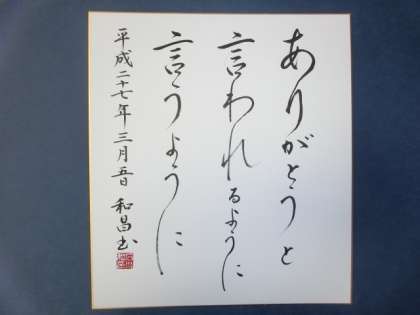 ありがとうと
言われるように
言うように
平成二十七年三月五日 和昌書